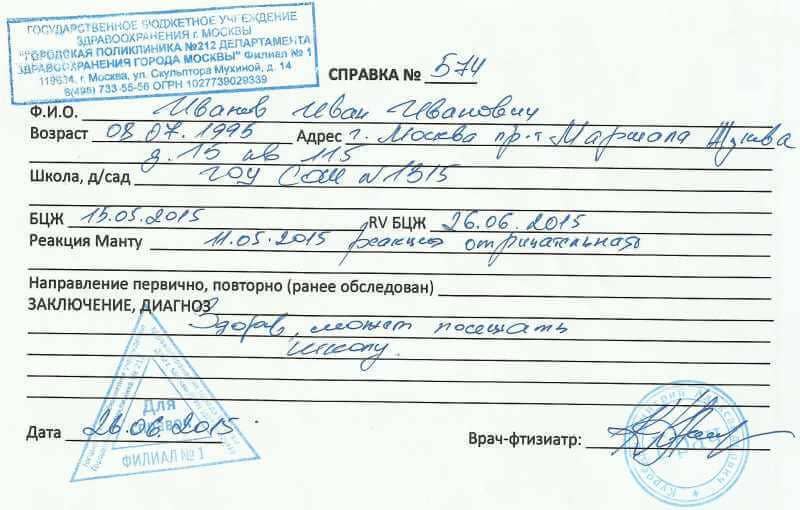 ГОСУДАРСТВЕННОЕ БЮДЖЕТНОЕ УЧРЕЖДЕНИЕ
ЗДРАВООХРАНЕНИЯ г. МОСКВЫ
"ГОРОДСКАЯ ПОЛИКЛИНИКА №212 ДЕПАРТАМЕНТА
ЗДРАВООХРАНЕНИЯ ГОРОДА МОСКВЫ" Филиал № 1
119634, г. Москва, ул. Скульптора Мухиной, д. 14
8(495) 733-55-56 ОГРН 1027739029339
СПРАВКА № 574
Ф.И.О. Иванов Иван Иванович
Возраст 08.07.1995 Адрес г. Москва пр-т Маршала Жукова
д. 15 кв 115
Школа, д/сад ГОУ СОШ №1315
БЦЖ 15.05.2015 RV БЦЖ 26.06.2015
Реакция Манту 11.05.2015 реакция отрицательная
Направление первично, повторно (ранее обследован)
ЗАКЛЮЧЕНИЕ, ДИАГНОЗ
Здоров, может посещать
школу.
Для
справок
ФИЛИАЛ №1
Дата 26.06.2015 Врач-фтизиатр: